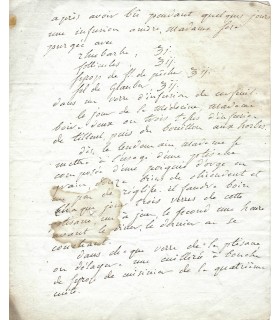 après avoir bu pendant quelques jours
une infusion amère, madame sera
purgée avec
rhubarbe, ʒj.
follicules ʒij.
sirop de fl de pêcher ʒij.
sel de Glauber ʒij.
dans un verre d'infusion de cerfeuil
le jour de la médecine madame
boira deux ou trois tasses d'infusion
de tilleul, puis du bouillon aux herbes
dès le lendemain madame se
mettra à l'usage d'une ptisane
composée d'une poignée d'orge en
grain, de chiendent et
un peu de réglisse. il faudra boire
chaque jour trois verres de cette
ptisane un à jeun, le second une heure
avant le diner, le dernier en se
couchant.
dans chaque verre de la ptisane
on délayera une cuillerée à bouche
de sirop de cuisinier de la quatrième
cuite.